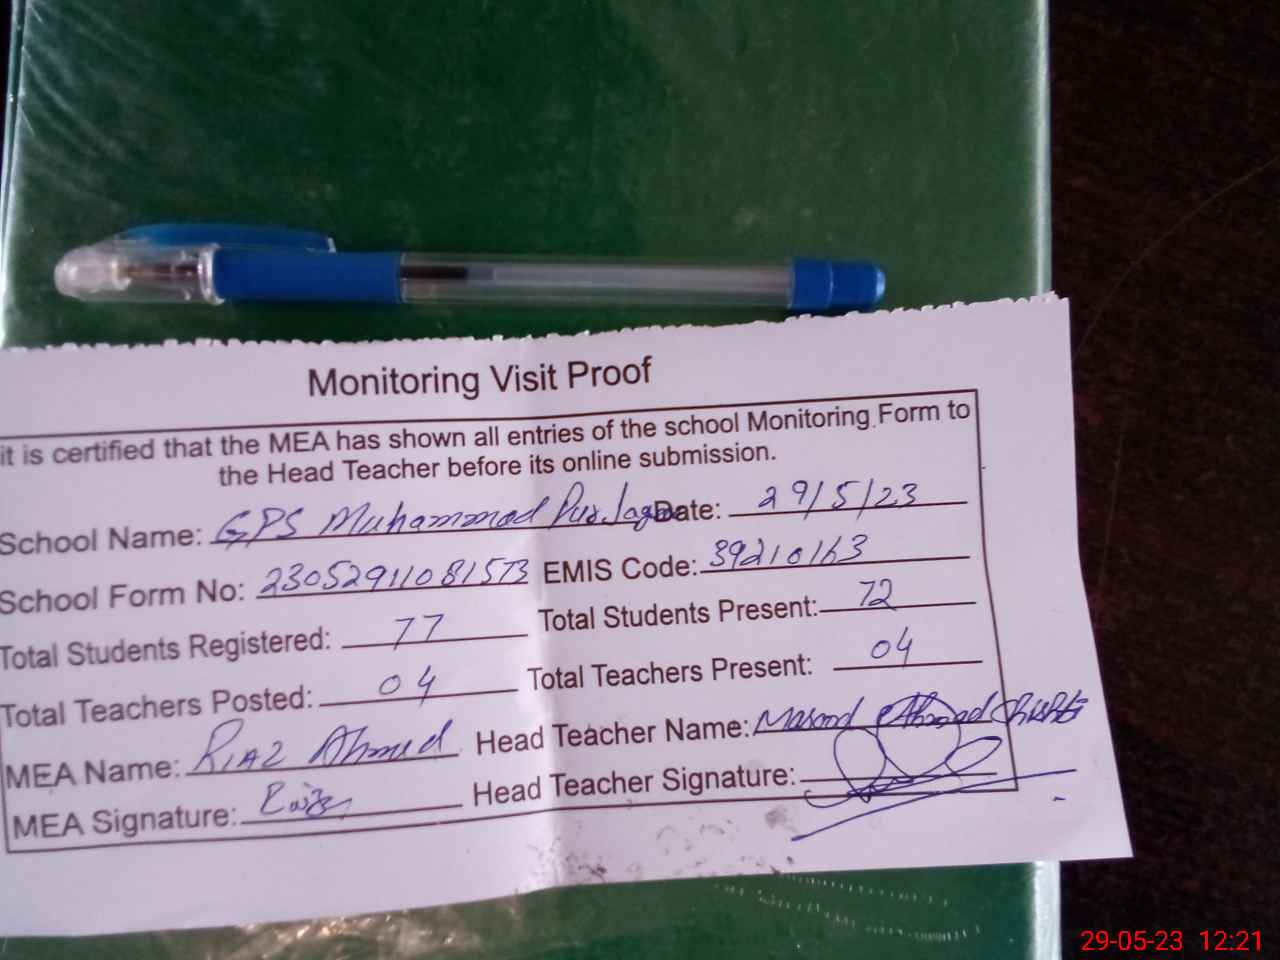 Monitoring Visit Proof
it is certified that the MEA has shown all entries of the school Monitoring Form to
the Head Teacher before its online submission.
School Name: GPS Muhammad Pur Date: 29/5/23
School Form No: 23052911081573 EMIS Code: 39210163
Total Students Registered: 77 Total Students Present: 72
Total Teachers Posted: 04 Total Teachers Present: 04
MEA Name: Riaz Ahmed Head Teacher Name: Masood Ahmad
MEA Signature: Head Teacher Signature:
29-05-23 12:21